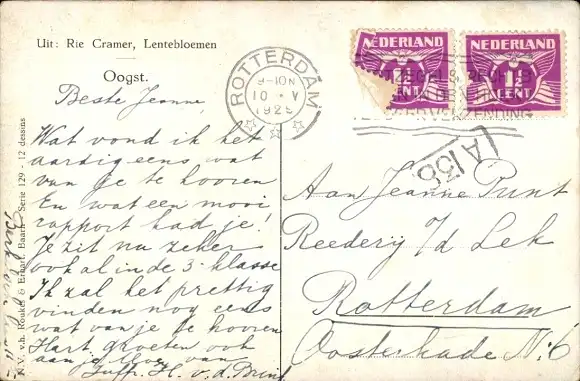 Uit: Rie Cramer, Lentebloemen
Oogst.
Beste Jeanne,
Wat vond ik het
aardig eens wat
van je te hooren
En wat een mooi
rapport had je!
Je zit nu zeker
ook al in de 3e klasse
Ik zal het prettig
vinden nog eens
wat van je te hooren
Hart. groeten ook
aan je Moe. van
Juffr. H. v. d. Brink
N.V. v.h. Roukes & Erhart, Baarn Serie 129 - 12 dessins
ROTTERDAM
9-10N
10 V
1925
NEDERLAND
NEDERLAND
1½
CENT
A138
Aan Jeanne Punt
Reederij v/d Lek
Rotterdam
Oosterkade No 6